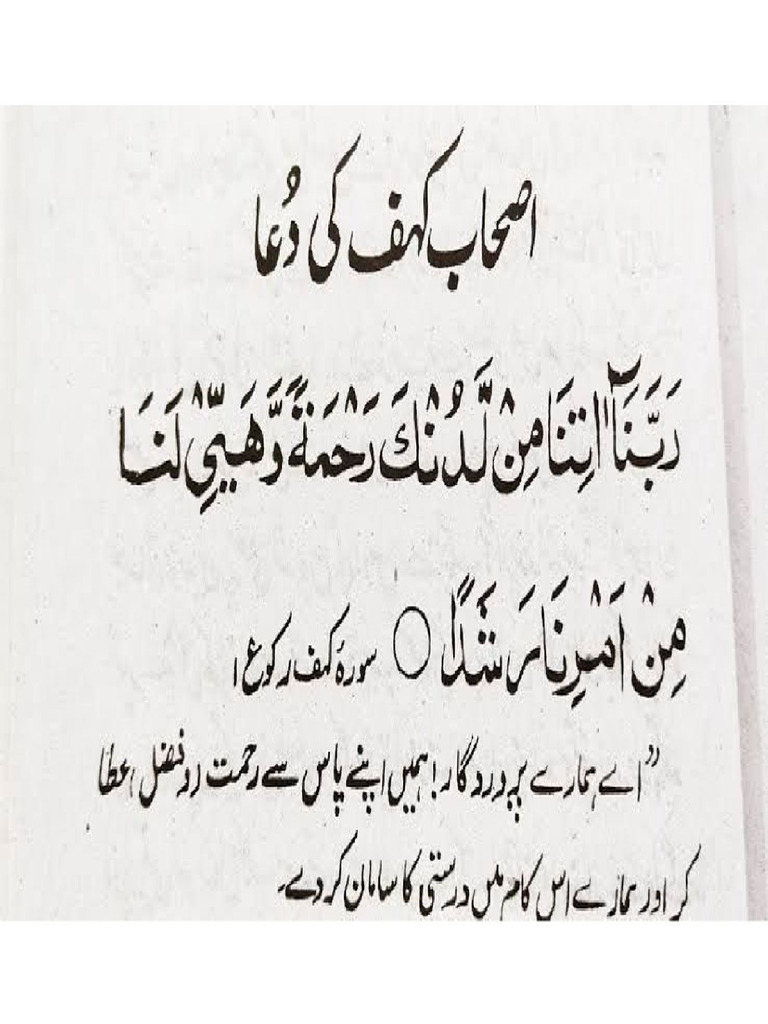 اصحاب کہف کی دُعا
رَبَّنَآ اٰتِنَا مِنْ لَّدُنْكَ رَحْمَةً وَّهَيِّئْ لَنَا
مِنْ اَمْرِنَا رَشَدًا ○ سورۂ کہف رکوع ۱
”اے ہمارے پروردگار! ہمیں اپنے پاس سے رحمت (وفضل) عطا
کر اور ہمارے اس کام میں درستی کا سامان کر دے۔